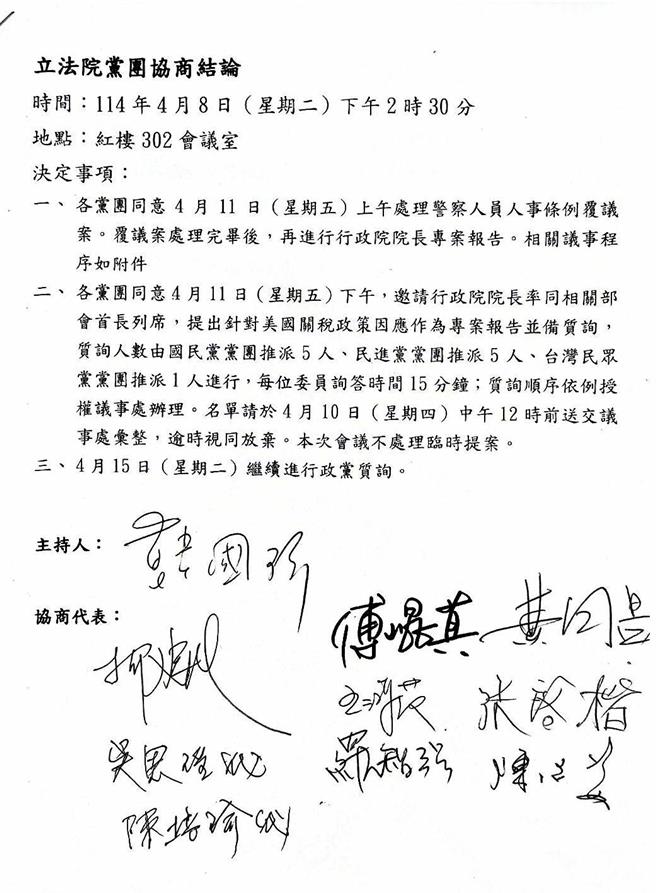 立法院黨團協商結論
時間：114年4月8日（星期二）下午2時30分
地點：紅樓302會議室
決定事項：
一、各黨團同意4月11日（星期五）上午處理警察人員人事條例覆議
案。覆議案處理完畢後，再進行行政院院長專案報告。相關議事程
序如附件
二、各黨團同意4月11日（星期五）下午，邀請行政院院長率同相關部
會首長列席，提出針對美國關稅政策因應作為專案報告並備質詢，
質詢人數由國民黨黨團推派5人、民進黨黨團推派5人、台灣民眾
黨黨團推派1人進行，每位委員詢答時間15分鐘；質詢順序依例授
權議事處辦理。名單請於4月10日（星期四）中午12時前送交議
事處彙整，逾時視同放棄。本次會議不處理臨時提案。
三、4月15日（星期二）繼續進行政黨質詢。
主持人：
協商代表：
傅崐萁 黃國昌
張啓楷
吳思瑤代 羅智強
陳培瑜代